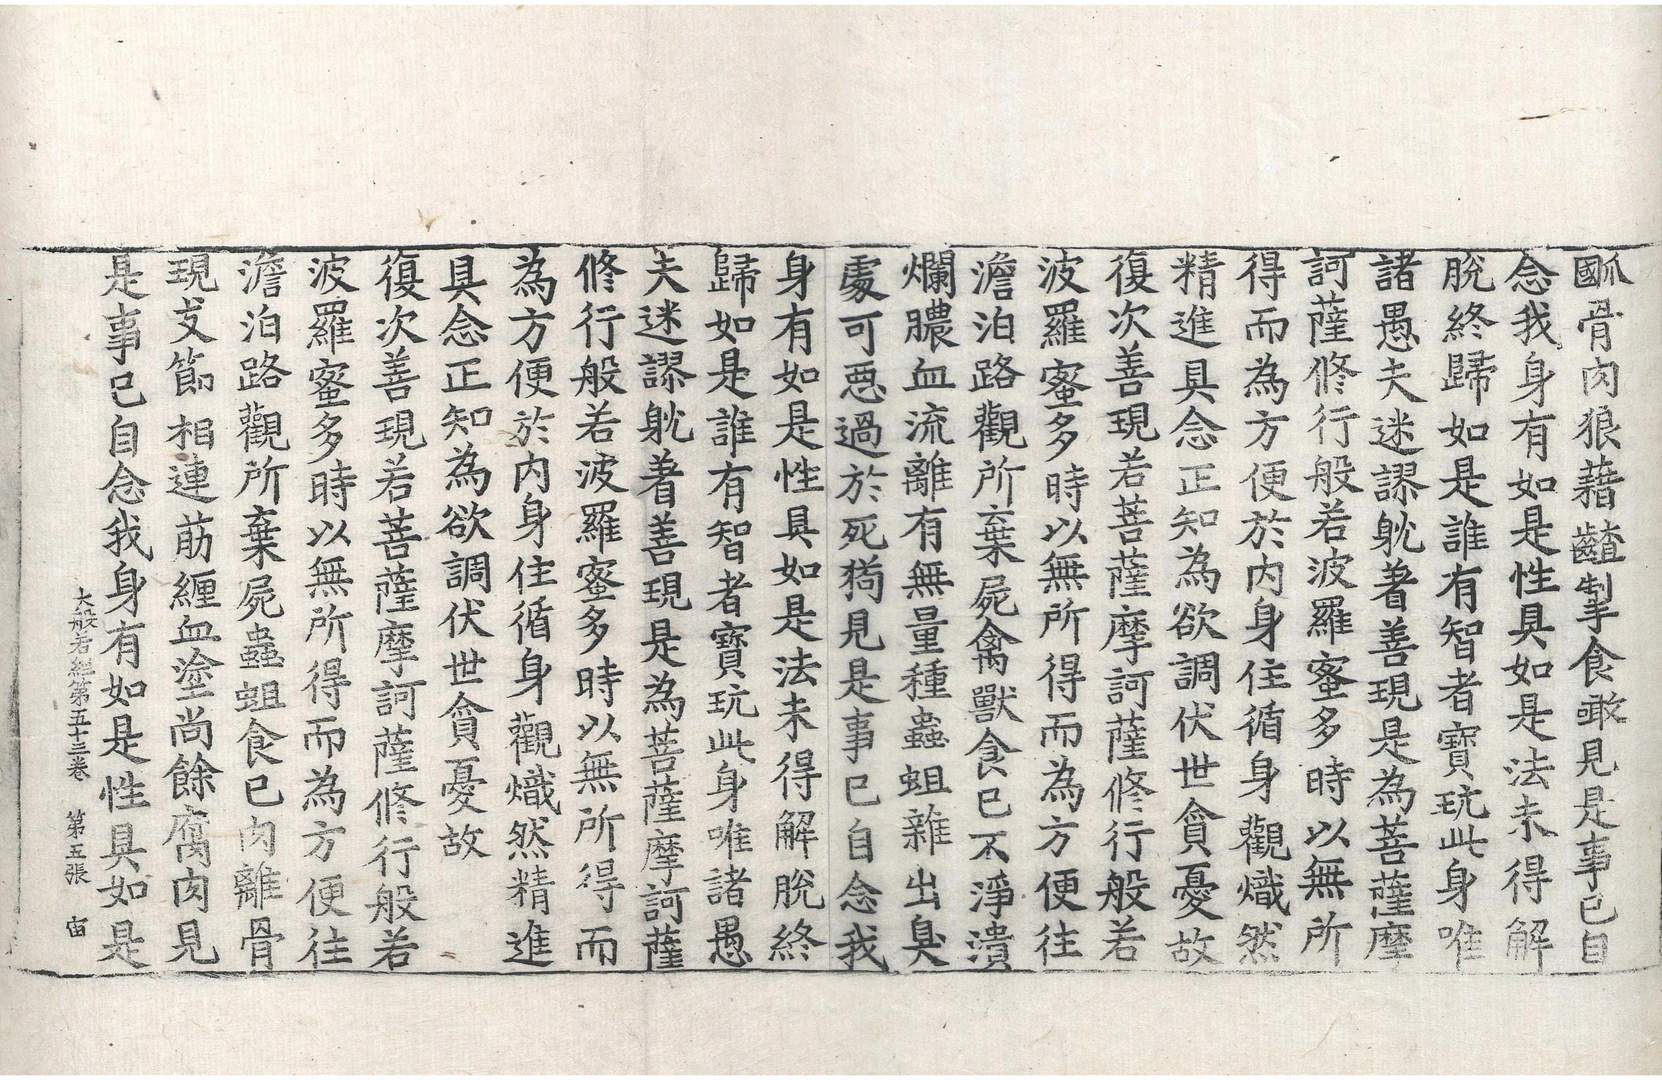 𣤶骨肉狼藉齰掣食噉見是事已自
念我身有如是性具如是法未得解
脫終歸如是誰有智者寶玩此身唯
諸愚夫迷謬躭著善現是為菩薩摩
訶薩修行般若波羅蜜多時以無所
得而為方便於內身住循身觀熾然
精進具念正知為欲調伏世貪憂故
復次善現若菩薩摩訶薩修行般若
波羅蜜多時以無所得而為方便往
澹泊路觀所棄屍禽獸食已不淨潰
爛膿血流離有無量種蟲蛆雜出臭
處可惡過於死狗見是事已自念我
身有如是性具如是法未得解脫終
歸如是誰有智者寶玩此身唯諸愚
夫迷謬躭著善現是為菩薩摩訶薩
修行般若波羅蜜多時以無所得而
為方便於內身住循身觀熾然精進
具念正知為欲調伏世貪憂故
復次善現若菩薩摩訶薩修行般若
波羅蜜多時以無所得而為方便往
澹泊路觀所棄屍蟲蛆食已肉離骨
現支節相連筋纏血塗尚餘腐肉見
是事已自念我身有如是性具如是
大般若經第五十三卷 第五張 宙